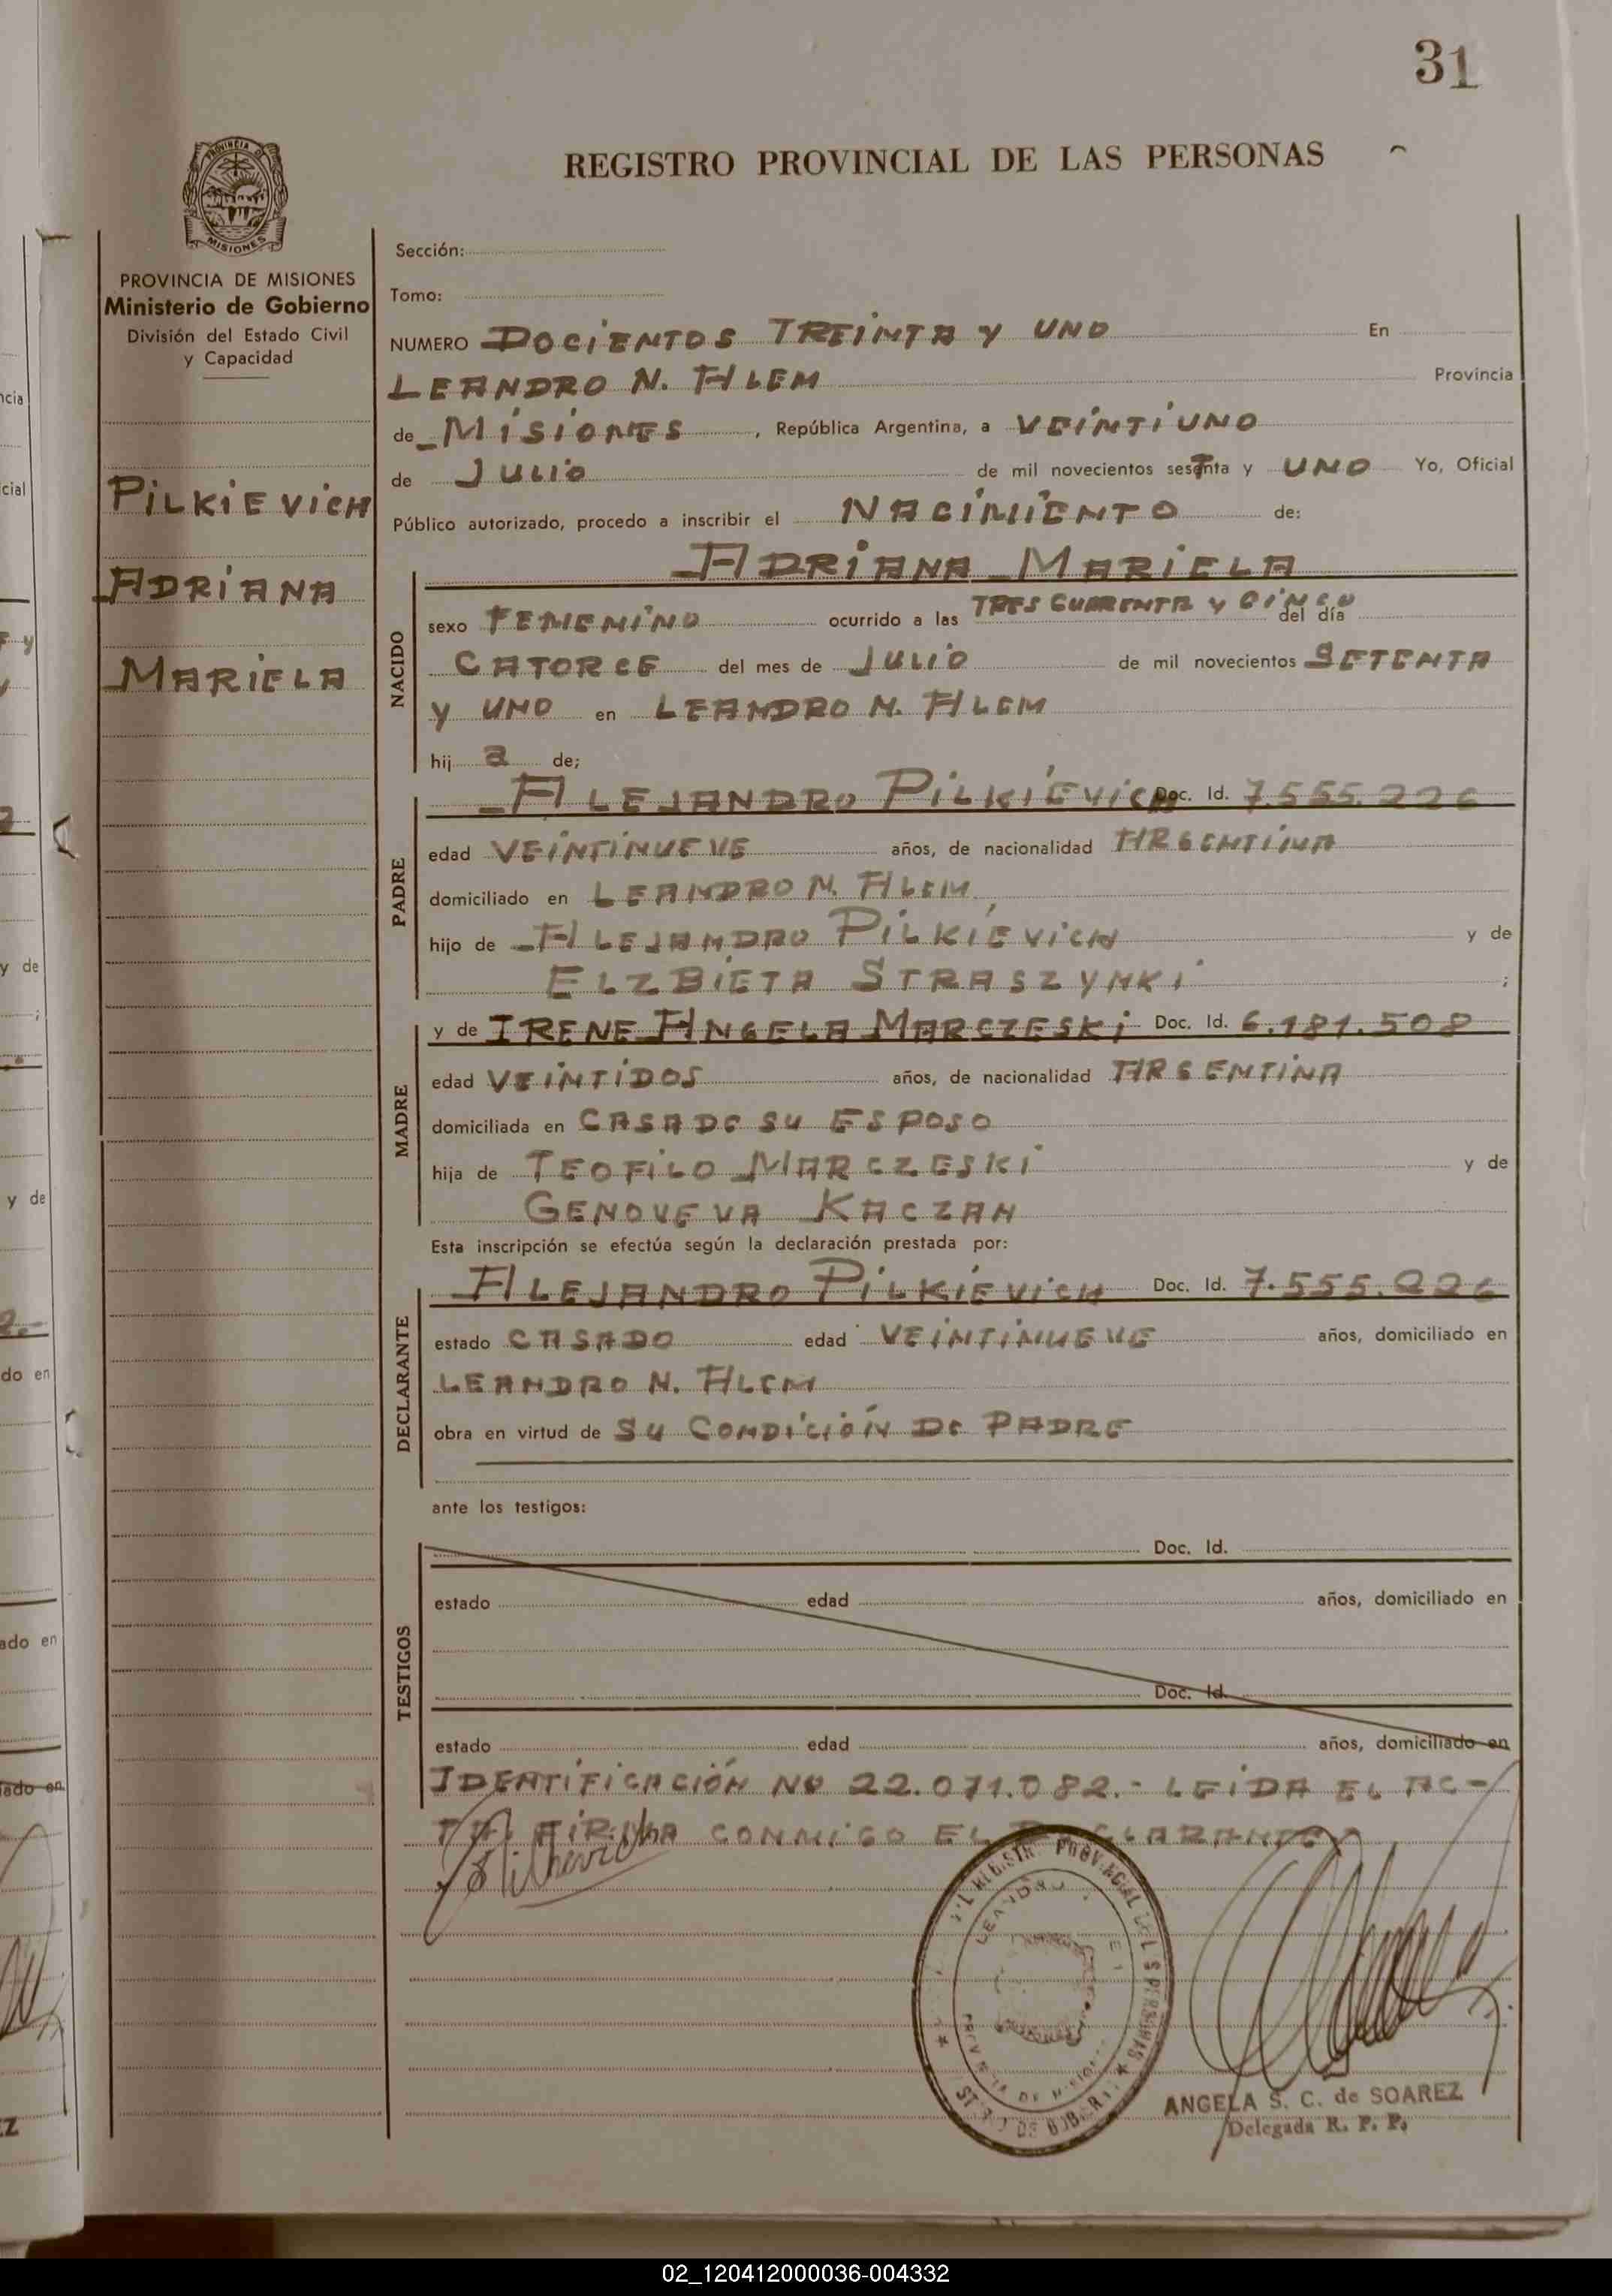 31
REGISTRO PROVINCIAL DE LAS PERSONAS
PROVINCIA DE MISIONES
Ministerio de Gobierno
División del Estado Civil
y Capacidad
PILKIEVICH
ADRIANA
MARIELA
Sección:
Tomo:
NUMERO DOCIENTOS TREINTA Y UNO En
LEANDRO N. ALEM Provincia
de MISIONES, República Argentina, a VEINTIUNO
de JULIO de mil novecientos sesTnta y UNO Yo, Oficial
Público autorizado, procedo a inscribir el NACIMIENTO de:
ADRIANA MARIELA
NACIDO
sexo FEMENINO ocurrido a las TRES CUARENTA Y CINCO del día
CATORCE del mes de JULIO de mil novecientos SETENTA
Y UNO en LEANDRO N. ALEM
hij a de;
PADRE
ALEJANDRO PILKIEVICH Doc. Id. 7.555.226
edad VEINTINUEVE años, de nacionalidad ARGENTINA
domiciliado en LEANDRO N. ALEM
hijo de ALEJANDRO PILKIEVICH y de
ELZBIETA STRASZYNKI ;
MADRE
y de IRENE ANGELA MARCZESKI Doc. Id. 6.181.508
edad VEINTIDOS años, de nacionalidad ARGENTINA
domiciliada en CASA DE SU ESPOSO
hija de TEOFILO MARCZESKI y de
GENOVEVA KACZAN
Esta inscripción se efectúa según la declaración prestada por:
DECLARANTE
ALEJANDRO PILKIEVICH Doc. Id. 7.555.226
estado CASADO edad VEINTINUEVE años, domiciliado en
LEANDRO N. ALEM
obra en virtud de SU CONDICIÓN DE PADRE
ante los testigos:
TESTIGOS
Doc. Id.
estado edad años, domiciliado en
Doc. Id.
estado edad años, domiciliado en
IDENTIFICACIÓN Nº 22.071.082.- LEIDA EL AC-
TA, FIRMA CONMIGO EL DECLARANTE
ANGELA S. C. de SOAREZ
Delegada R. P. P.
02_120412000036-004332